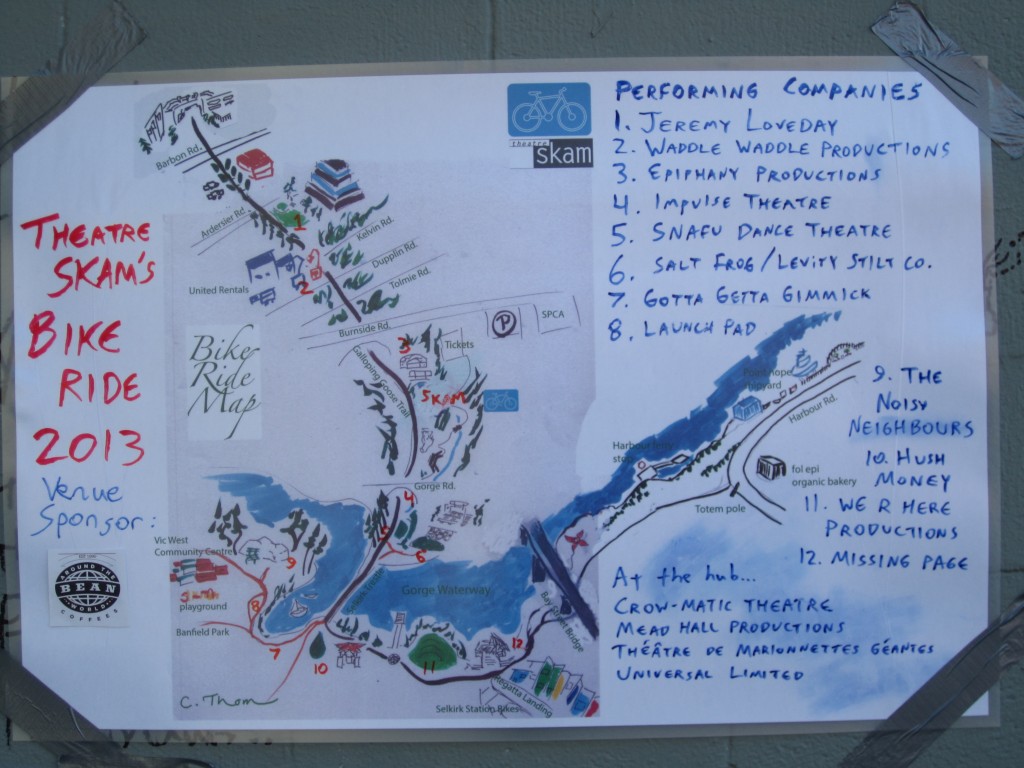 THEATRE
SKAM'S
BIKE
RIDE
2013
Venue
Sponsor:
AROUND THE
BEAN
WORLD
COFFEES
theatre
skam
Barbon Rd.
Ardersier Rd.
1
Kelvin Rd.
Dupplin Rd.
Tolmie Rd.
United Rentals
2
Burnside Rd.
P
SPCA
Bike
Ride
Map
3
Tickets
Galloping Goose Trail
SKAM
Gorge Rd.
4
5
6
Vic West
Community Centre
9
playground
8
Banfield Park
7
Gorge Waterway
10
11
12
Bay Street Bridge
Regatta Landing
Selkirk Station Bikes
C. Thom
Harbour Rd.
fol epi
organic bakery
Totem pole
PERFORMING COMPANIES
1. JEREMY LOVEDAY
2. WADDLE WADDLE PRODUCTIONS
3. EPIPHANY PRODUCTIONS
4 IMPULSE THEATRE
5. SNAFU DANCE THEATRE
6. SALT FROG/LEVITY STILT CO.
7. GOTTA GETTA GIMMICK
8. LAUNCH PAD
9. THE
NOISY
NEIGHBOURS
10. HUSH
MONEY
11. WE R HERE
PRODUCTIONS
12. MISSING PAGE
At the hub...
CROW-MATIC THEATRE
MEAD HALL PRODUCTIONS
THÉÂTRE DE MARIONNETTES GÉANTES
UNIVERSAL LIMITED